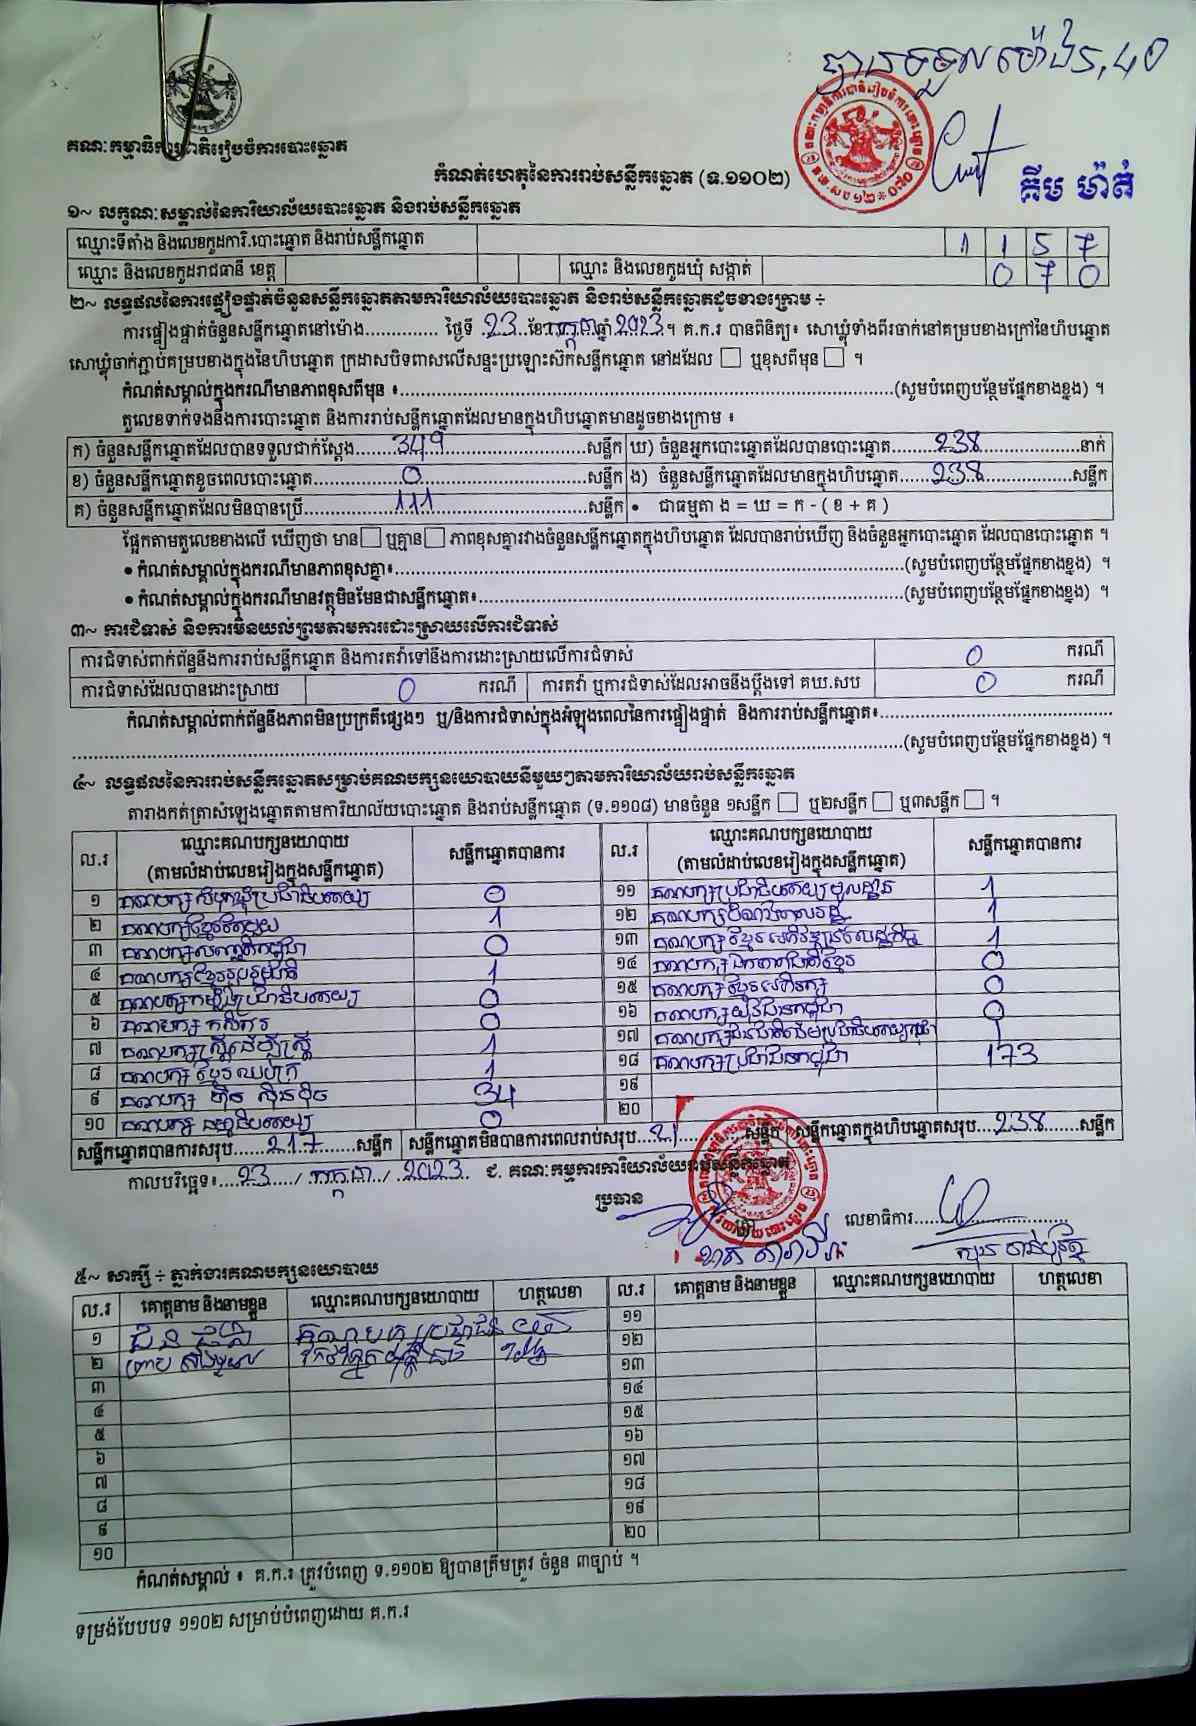 បានទទួលម៉ោង ៦,៤០
គណៈកម្មាធិការជាតិរៀបចំការបោះឆ្នោត
កំណត់ហេតុនៃការរាប់សន្លឹកឆ្នោត (ទ.១១០២)
គីម ម៉ាត់
១~ លក្ខណៈសម្គាល់នៃការិយាល័យបោះឆ្នោត និងរាប់សន្លឹកឆ្នោត
ឈ្មោះទីតាំង និងលេខកូដការិ.បោះឆ្នោត និងរាប់សន្លឹកឆ្នោត 1 1 5 7
ឈ្មោះ និងលេខកូដរាជធានី ខេត្ត ឈ្មោះ និងលេខកូដឃុំ សង្កាត់ 0 7 0
២~ លទ្ធផលនៃការផ្ទៀងផ្ទាត់ចំនួនសន្លឹកឆ្នោតតាមការិយាល័យបោះឆ្នោត និងរាប់សន្លឹកឆ្នោតដូចខាងក្រោម ÷
ការផ្ទៀងផ្ទាត់ចំនួនសន្លឹកឆ្នោតនៅម៉ោង.............. ថ្ងៃទី 23 ខែ កក្កដា ឆ្នាំ 2023 ។ គ.ក.រ បានពិនិត្យ៖ សោឃ្លុំទាំងពីរចាក់នៅគម្របខាងក្រៅនៃហិបឆ្នោត
សោឃ្លុំចាក់ភ្ជាប់គម្របខាងក្នុងនៃហិបឆ្នោត ក្រដាសបិទពាសលើសន្ទះប្រឡោះស៊កសន្លឹកឆ្នោត នៅដដែល □ ឬខុសពីមុន □ ។
កំណត់សម្គាល់ក្នុងករណីមានភាពខុសពីមុន ៖..............(សូមបំពេញបន្ថែមផ្នែកខាងខ្នង) ។
តួលេខទាក់ទងនឹងការបោះឆ្នោត និងការរាប់សន្លឹកឆ្នោតដែលមានក្នុងហិបឆ្នោតមានដូចខាងក្រោម ៖
ក) ចំនួនសន្លឹកឆ្នោតដែលបានទទួលជាក់ស្តែង 349 សន្លឹក ឃ) ចំនួនអ្នកបោះឆ្នោតដែលបានបោះឆ្នោត 238 នាក់
ខ) ចំនួនសន្លឹកឆ្នោតខូចពេលបោះឆ្នោត 0 សន្លឹក ង) ចំនួនសន្លឹកឆ្នោតដែលមានក្នុងហិបឆ្នោត 238 សន្លឹក
គ) ចំនួនសន្លឹកឆ្នោតដែលមិនបានប្រើ 111 សន្លឹក • ជាធម្មតា ង = ឃ = ក - ( ខ + គ )
ផ្អែកតាមតួលេខខាងលើ ឃើញថា មាន □ ឬគ្មាន □ ភាពខុសគ្នារវាងចំនួនសន្លឹកឆ្នោតក្នុងហិបឆ្នោត ដែលបានរាប់ឃើញ និងចំនួនអ្នកបោះឆ្នោត ដែលបានបោះឆ្នោត ។
• កំណត់សម្គាល់ក្នុងករណីមានភាពខុសគ្នា៖..............(សូមបំពេញបន្ថែមផ្នែកខាងខ្នង) ។
• កំណត់សម្គាល់ក្នុងករណីមានវត្ថុមិនមែនជាសន្លឹកឆ្នោត៖..............(សូមបំពេញបន្ថែមផ្នែកខាងខ្នង) ។
៣~ ការជំទាស់ និងការមិនយល់ព្រមតាមការដោះស្រាយលើការជំទាស់
ការជំទាស់ពាក់ព័ន្ធនឹងការរាប់សន្លឹកឆ្នោត និងការតវ៉ាទៅនឹងការដោះស្រាយលើការជំទាស់ 0 ករណី
ការជំទាស់ដែលបានដោះស្រាយ 0 ករណី ការតវ៉ា ឬការជំទាស់ដែលអាចនឹងប្តឹងទៅ គឃ.សប 0 ករណី
កំណត់សម្គាល់ពាក់ព័ន្ធនឹងភាពមិនប្រក្រតីផ្សេងៗ ឬ/និងការជំទាស់ក្នុងអំឡុងពេលនៃការផ្ទៀងផ្ទាត់ និងការរាប់សន្លឹកឆ្នោត៖..............
..............(សូមបំពេញបន្ថែមផ្នែកខាងខ្នង) ។
៤~ លទ្ធផលនៃការរាប់សន្លឹកឆ្នោតសម្រាប់គណបក្សនយោបាយនីមួយៗតាមការិយាល័យរាប់សន្លឹកឆ្នោត
តារាងកត់ត្រាសំឡេងឆ្នោតតាមការិយាល័យបោះឆ្នោត និងរាប់សន្លឹកឆ្នោត (ទ.១១០៨) មានចំនួន ១សន្លឹក □ ឬ២សន្លឹក □ ឬ៣សន្លឹក □ ។
ល.រ ឈ្មោះគណបក្សនយោបាយ (តាមលំដាប់លេខរៀងក្នុងសន្លឹកឆ្នោត) សន្លឹកឆ្នោតបានការ ល.រ ឈ្មោះគណបក្សនយោបាយ (តាមលំដាប់លេខរៀងក្នុងសន្លឹកឆ្នោត) សន្លឹកឆ្នោតបានការ
១ គណបក្សសំបុកឃ្មុំប្រជាធិបតេយ្យ 0 ១១ គណបក្សប្រជាធិបតេយ្យមូលដ្ឋាន 1
២ គណបក្សខ្មែរតែមួយ 1 ១២ គណបក្សឆន្ទៈខ្មែរ 1
៣ គណបក្សសញ្ជាតិកម្ពុជា 0 ១៣ គណបក្សខ្មែរអភិវឌ្ឍន៍សេដ្ឋកិច្ច 1
៤ គណបក្សខ្មែររួបរួមជាតិ 1 ១៤ គណបក្សឯកភាពជាតិខ្មែរ 0
៥ គណបក្សកម្លាំងប្រជាធិបតេយ្យ 0 ១៥ គណបក្សខ្មែរអភិរក្ស 0
៦ គណបក្សកសិករ 0 ១៦ គណបក្សយុវជនកម្ពុជា 0
៧ គណបក្សស្ត្រីដើម្បីស្ត្រី 1 ១៧ គណបក្សជនជាតិដើមប្រជាធិបតេយ្យកម្ពុជា 1
៨ គណបក្សខ្មែរឈប់ក្រ 1 ១៨ គណបក្សប្រជាជនកម្ពុជា 173
៩ គណបក្ស ហ្វ៊ុនស៊ិនប៉ិច 34 ១៩
១០ គណបក្ស ធម្មាធិបតេយ្យ 0 ២០
សន្លឹកឆ្នោតបានការសរុប 217 សន្លឹក សន្លឹកឆ្នោតមិនបានការពេលរាប់សរុប 21 សន្លឹក សន្លឹកឆ្នោតក្នុងហិបឆ្នោតសរុប 238 សន្លឹក
កាលបរិច្ឆេទ៖ 23 / កក្កដា / 2023 ជ. គណៈកម្មការការិយាល័យរាប់សន្លឹកឆ្នោត
ប្រធាន
លេខាធិការ
៥~ សាក្សី ÷ ភ្នាក់ងារគណបក្សនយោបាយ
ល.រ គោត្តនាម និងនាមខ្លួន ឈ្មោះគណបក្សនយោបាយ ហត្ថលេខា ល.រ គោត្តនាម និងនាមខ្លួន ឈ្មោះគណបក្សនយោបាយ ហត្ថលេខា
១ គណបក្សប្រជាជន ១១
២ ១២
៣ ១៣
៤ ១៤
៥ ១៥
៦ ១៦
៧ ១៧
៨ ១៨
៩ ១៩
១០ ២០
កំណត់សម្គាល់ ៖ គ.ក.រ ត្រូវបំពេញ ទ.១១០២ ឱ្យបានត្រឹមត្រូវ ចំនួន ៣ច្បាប់ ។
ទម្រង់បែបបទ ១១០២ សម្រាប់បំពេញដោយ គ.ក.រ